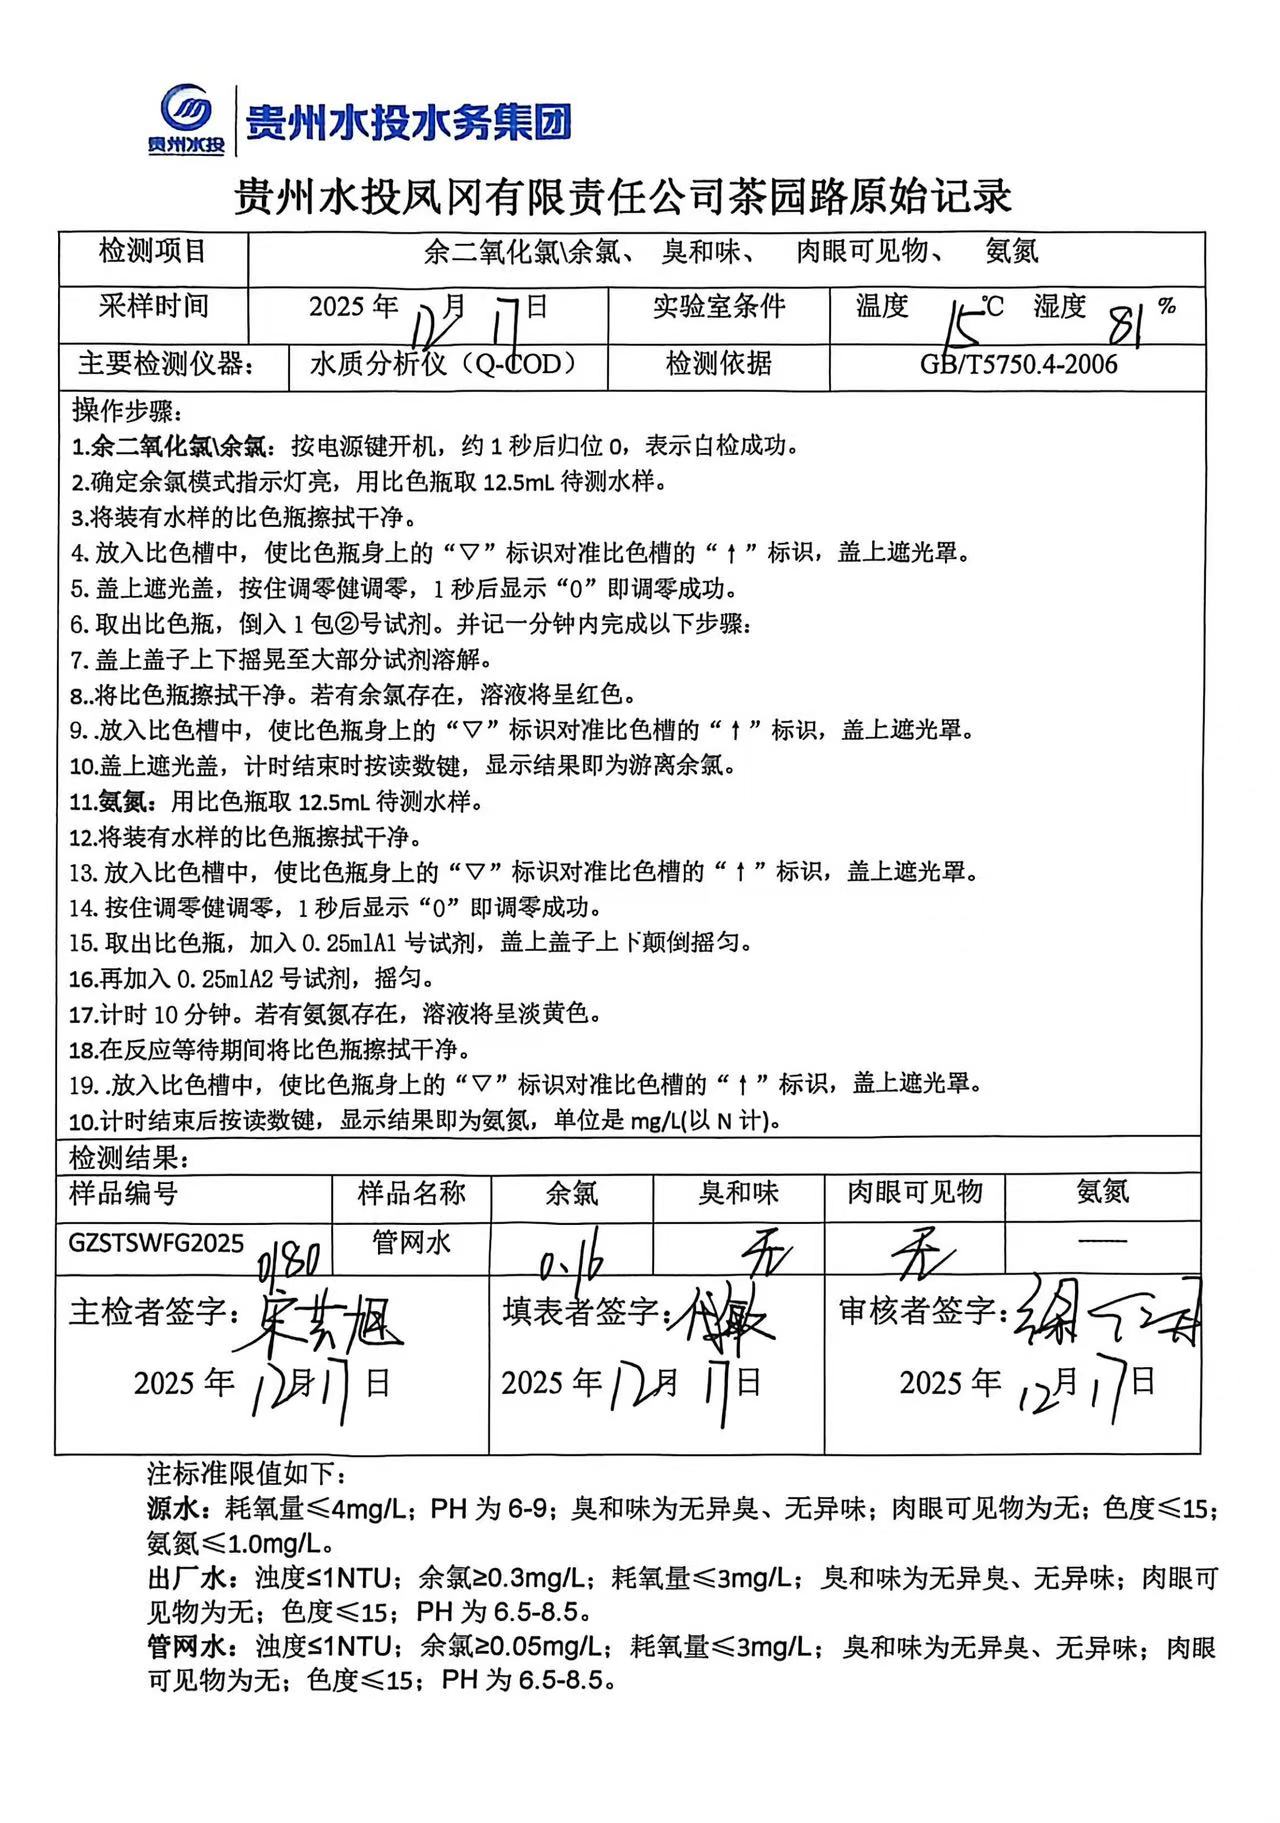 贵州水投
贵州水投水务集团
贵州水投凤冈有限责任公司茶园路原始记录
检测项目 余二氧化氯\余氯、 臭和味、 肉眼可见物、 氨氮
采样时间 2025 年 12 月 17 日 实验室条件 温度 15 ℃ 湿度 81 %
主要检测仪器： 水质分析仪（Q-COD） 检测依据 GB/T5750.4-2006
操作步骤：
1.余二氧化氯\余氯：按电源键开机，约 1 秒后归位 0，表示自检成功。
2.确定余氯模式指示灯亮，用比色瓶取 12.5mL 待测水样。
3.将装有水样的比色瓶擦拭干净。
4. 放入比色槽中，使比色瓶身上的“▽”标识对准比色槽的“↑”标识，盖上遮光罩。
5. 盖上遮光盖，按住调零健调零，1 秒后显示“0”即调零成功。
6. 取出比色瓶，倒入 1 包②号试剂。并记一分钟内完成以下步骤：
7. 盖上盖子上下摇晃至大部分试剂溶解。
8..将比色瓶擦拭干净。若有余氯存在，溶液将呈红色。
9. .放入比色槽中，使比色瓶身上的“▽”标识对准比色槽的“↑”标识，盖上遮光罩。
10.盖上遮光盖，计时结束时按读数键，显示结果即为游离余氯。
11.氨氮：用比色瓶取 12.5mL 待测水样。
12.将装有水样的比色瓶擦拭干净。
13. 放入比色槽中，使比色瓶身上的“▽”标识对准比色槽的“↑”标识，盖上遮光罩。
14. 按住调零健调零，1 秒后显示“0”即调零成功。
15. 取出比色瓶，加入 0.25mlA1 号试剂，盖上盖子上下颠倒摇匀。
16.再加入 0.25mlA2 号试剂，摇匀。
17.计时 10 分钟。若有氨氮存在，溶液将呈淡黄色。
18.在反应等待期间将比色瓶擦拭干净。
19. .放入比色槽中，使比色瓶身上的“▽”标识对准比色槽的“↑”标识，盖上遮光罩。
10.计时结束后按读数键，显示结果即为氨氮，单位是 mg/L(以 N 计)。
检测结果：
样品编号 样品名称 余氯 臭和味 肉眼可见物 氨氮
GZSTSWFG2025 0180 管网水 0.16 无 无 —
主检者签字： 填表者签字： 审核者签字：
2025 年 12 月 17 日 2025 年 12 月 17 日 2025 年 12 月 17 日
注标准限值如下：
源水：耗氧量≤4mg/L；PH 为 6-9；臭和味为无异臭、无异味；肉眼可见物为无；色度≤15；
氨氮≤1.0mg/L。
出厂水：浊度≤1NTU；余氯≥0.3mg/L；耗氧量≤3mg/L；臭和味为无异臭、无异味；肉眼可
见物为无；色度≤15；PH 为 6.5-8.5。
管网水：浊度≤1NTU；余氯≥0.05mg/L；耗氧量≤3mg/L；臭和味为无异臭、无异味；肉眼
可见物为无；色度≤15；PH 为 6.5-8.5。